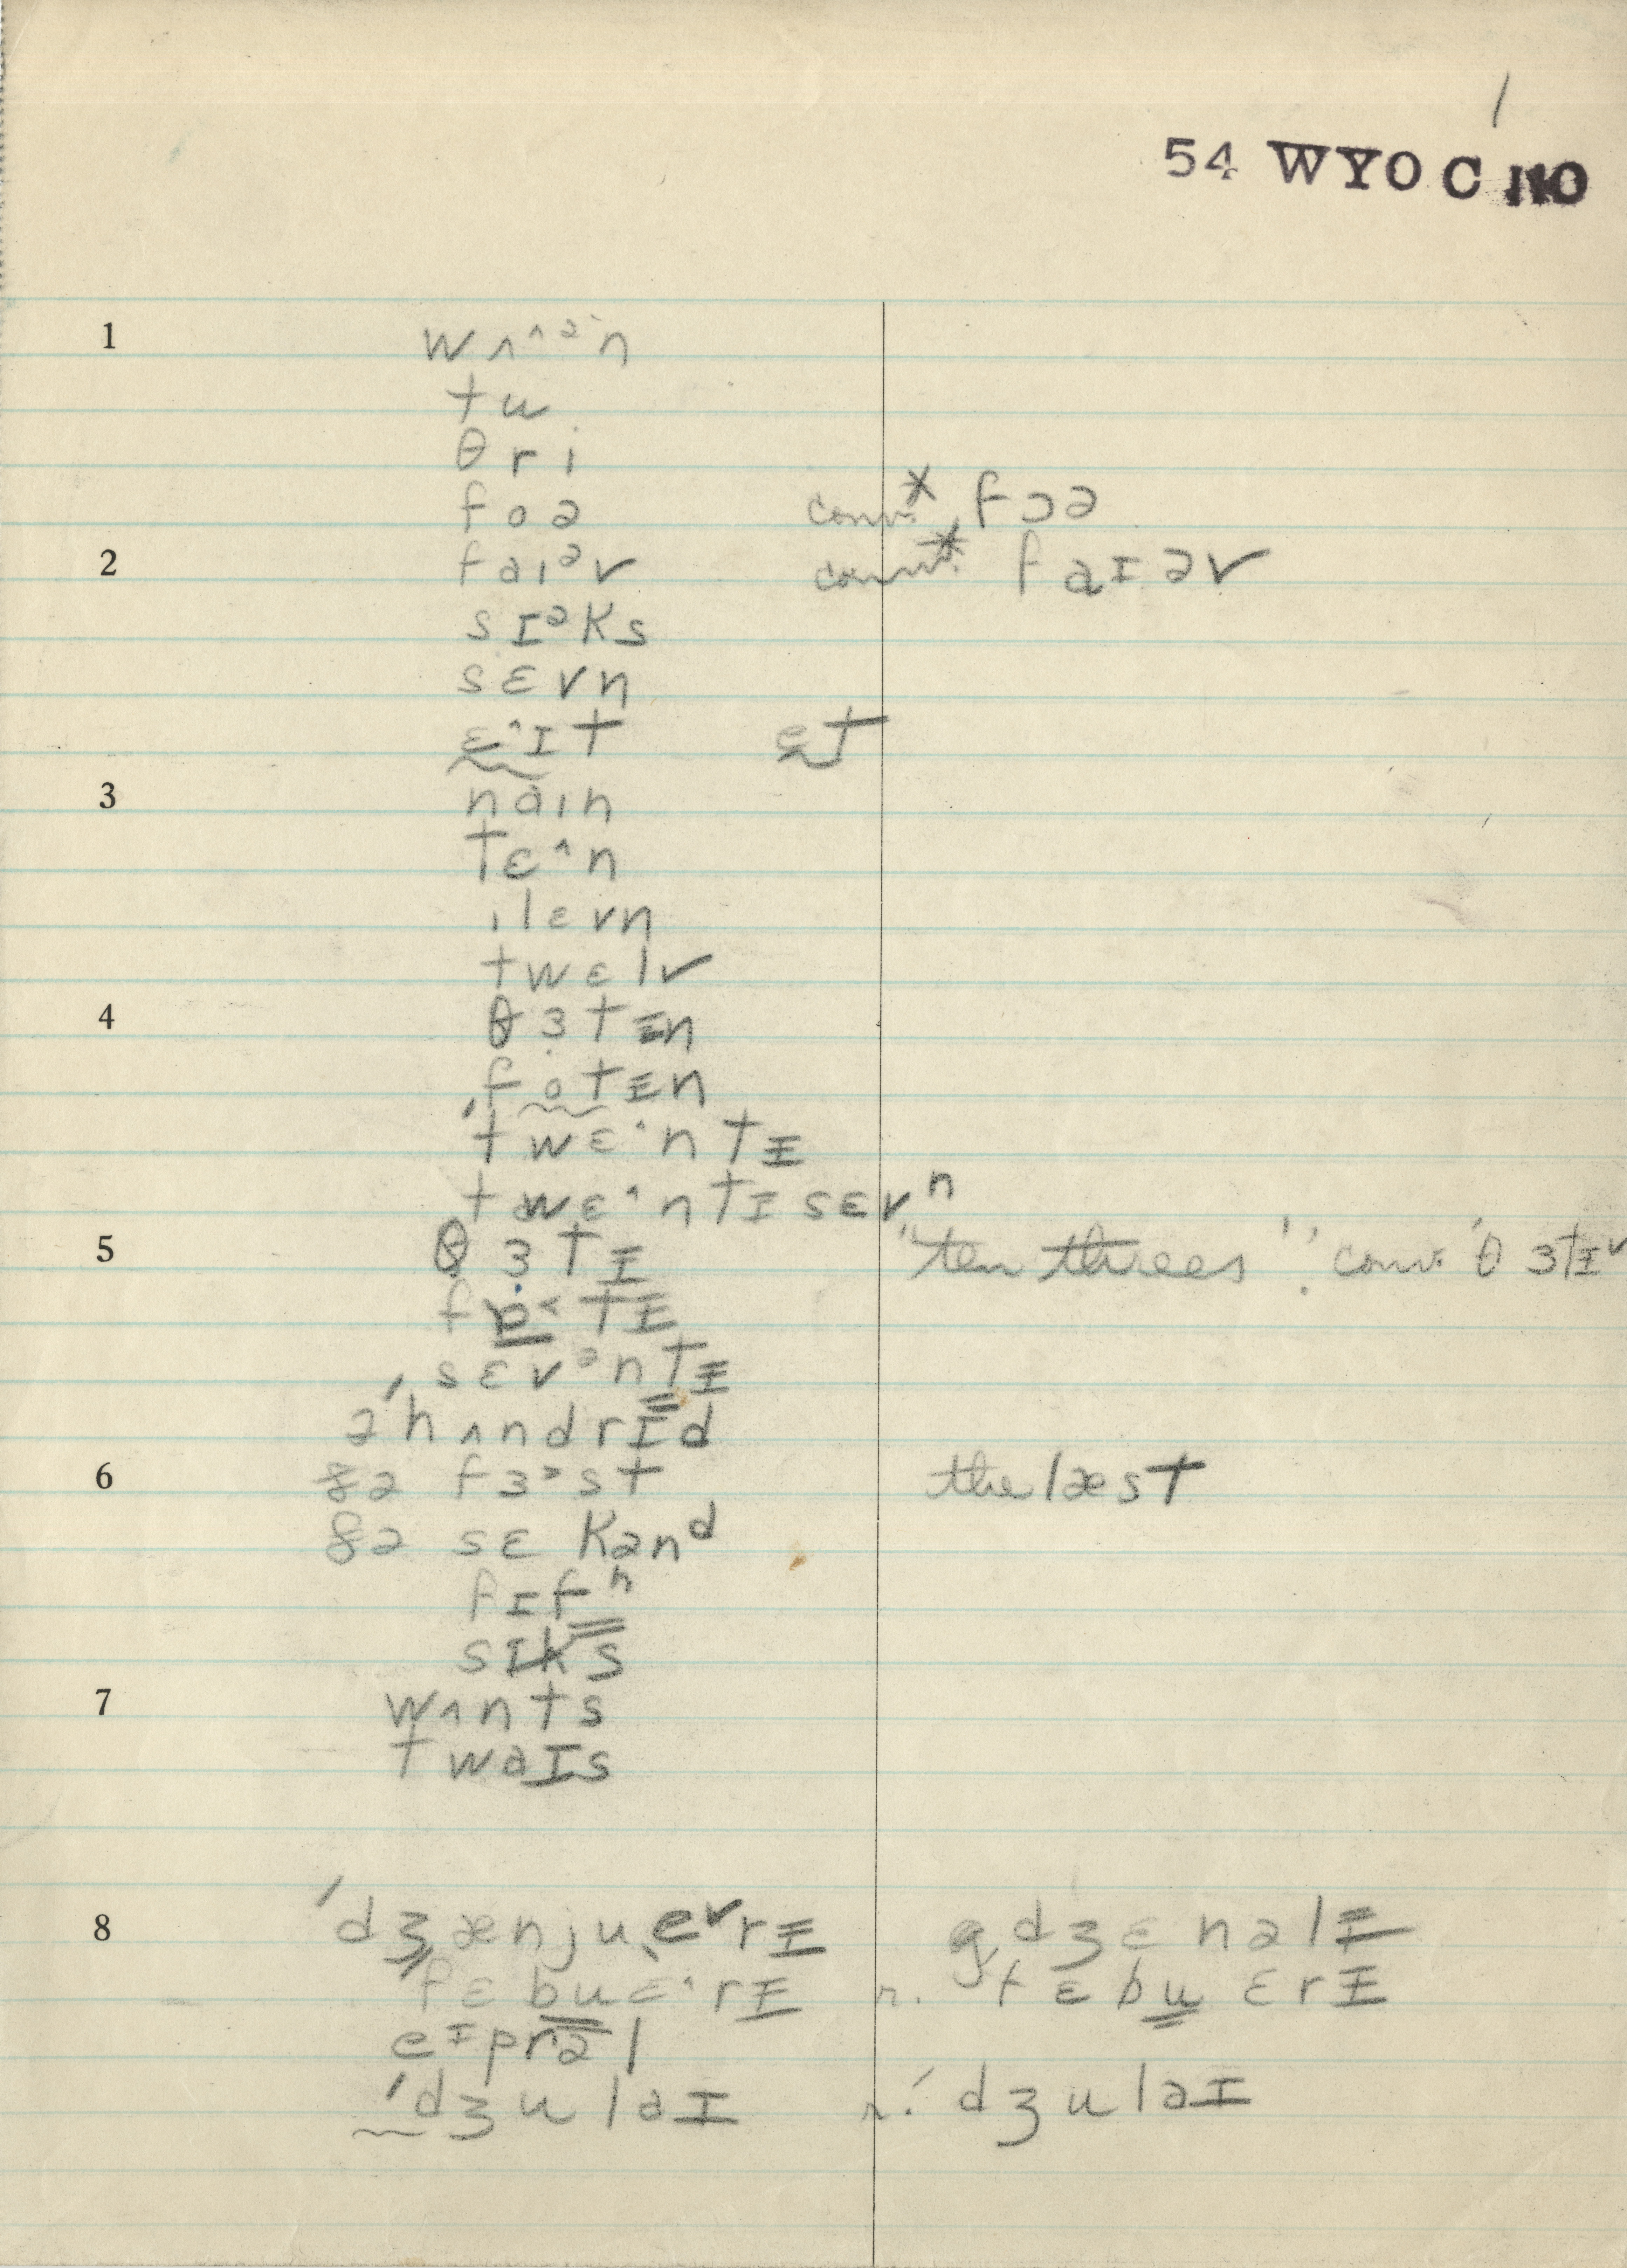 1
54 WYO C 110
1 wʌ^ən
tu
θri
foə conv. X fɔə
2 faɪəv conv. X faɪəv
sɪəks
sɛvn
ɛ^ɪt et
3 naɪn
tɛ^n
ɪlɛvn
twɛlv
4 θɜtɪn
fotɪn
'twɛ^ntɪ
twɛ^ntɪ sɛvn
5 θɜtɪ "ten threes" conv. 'θɜtɪ
tɪ
'sɛvəntɪ
ə'hʌndrɪd
6 ðə fɜst the læst
ðə sɛkənd
fɪf
sɪks
7 wʌnts
twaɪs
8 'dʒænjuˌɛvrɪ dʒɛnəlɪ
'fɛbuɛ^rɪ r. fɛbuɛrɪ
eɪprəl
'dʒulaɪ r. 'dʒulaɪ